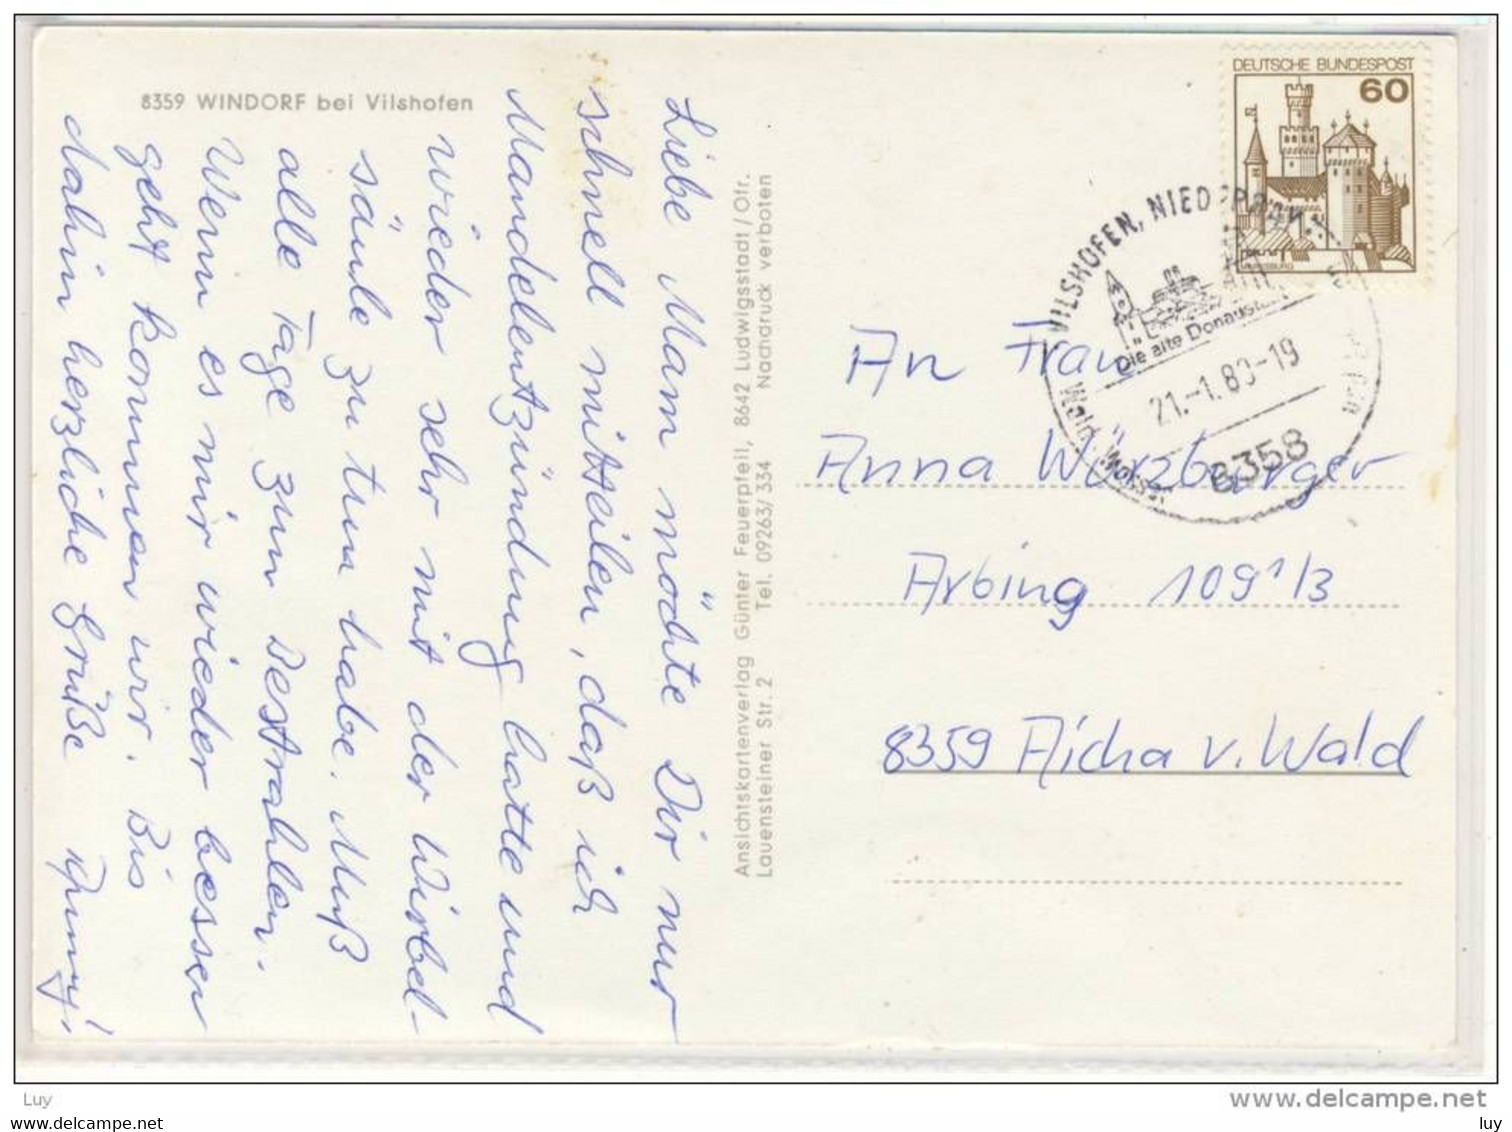 8359 WINDORF bei Vilshofen
Liebe Mam möchte Dir nur
schnell mitteilen, daß ich
Mandelentzündung hatte und
wieder sehr mit der Wirbel-
säule zu tun habe. Muß
alle Tage zum Bestrahlen.
Wenn es mir wieder besser
geht kommen wir. Bis
dahin herzliche Grüße
Ansichtskartenverlag Günter Feuerpfeil, 8642 Ludwigsstadt/Ofr.
Lauensteiner Str. 2 Tel. 09263/334 Nachdruck verboten
DEUTSCHE BUNDESPOST
60
VILSHOFEN, NIEDERBAY
Die alte Donaustadt
21.-1.80-19
8358
An Frau
Anna Würzburger
Arbing 109 1/3
8359 Aicha v. Wald
Luy
www.delcampe.net
www.delcampe.net
luy